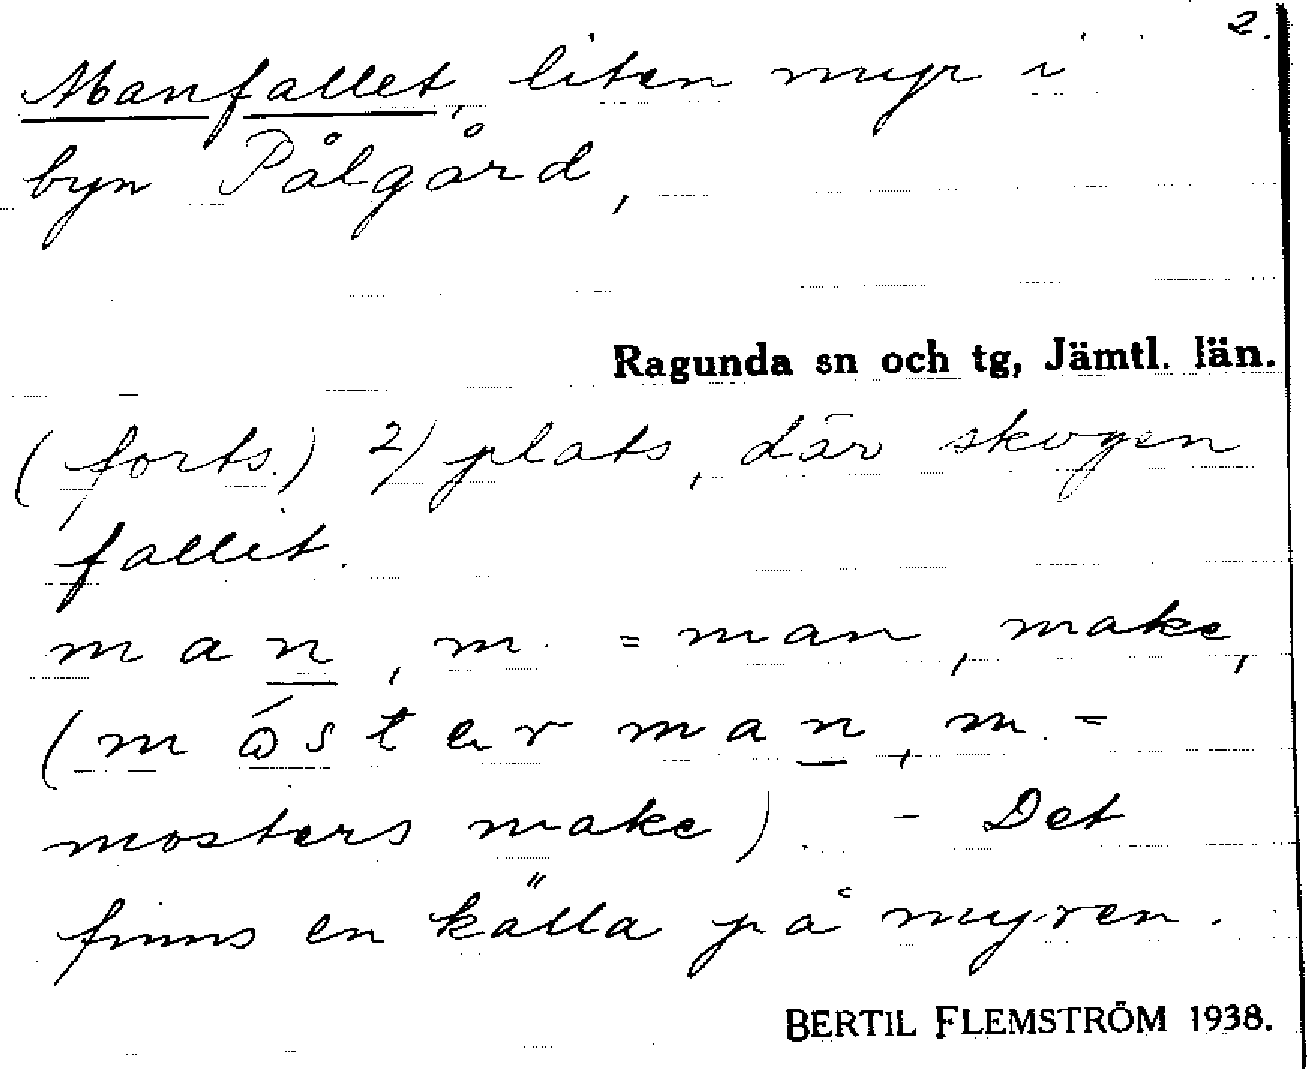 2.
Manfallet, liten myr i
byn Pålgård,
Ragunda sn och tg, Jämtl. län.
(forts.) 2) plats, där skogen
fallit.
man, m. = man, make,
(m óster man, m. =
mosters make). - Det
finns en källa på myren.
BERTIL FLEMSTRÖM 1938.